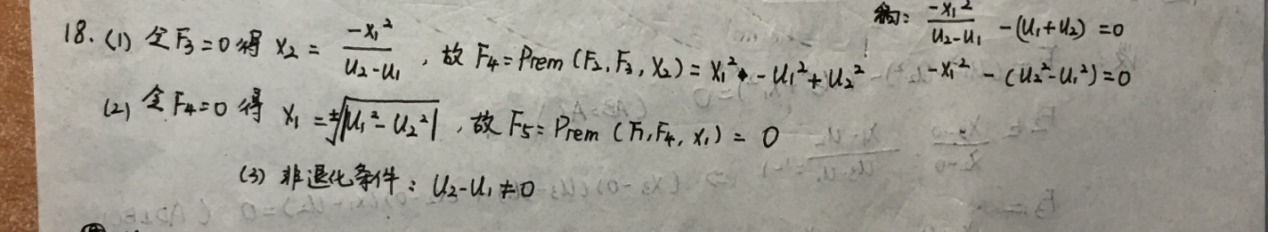 18. (1) 令F₃=0 得 x₂ = -x₁²/(u₂-u₁) , 故 F₄=Prem(F₂,F₃,x₂)=x₁²-u₁²+u₂²
-x₁²/(u₂-u₁) -(u₁+u₂) =0
-x₁² - (u₂²-u₁²)=0
(2) 令F₄=0 得 x₁ =±√|u₁²-u₂²| , 故F₅=Prem(F₁,F₄,x₁) = 0
(3) 非退化条件: u₂-u₁≠0